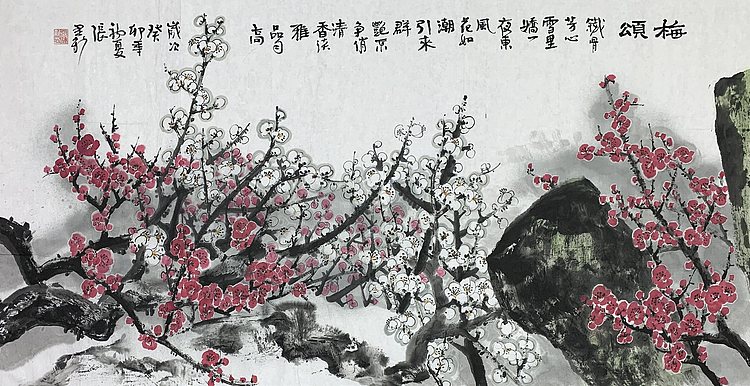 梅頌
鐵骨
芳心
雪里
嬌一
夜東
風
花如
潮
引来
群
艷不
争俏
清
香淡
雅
品自
高
歲次
癸
卯年
初夏
張